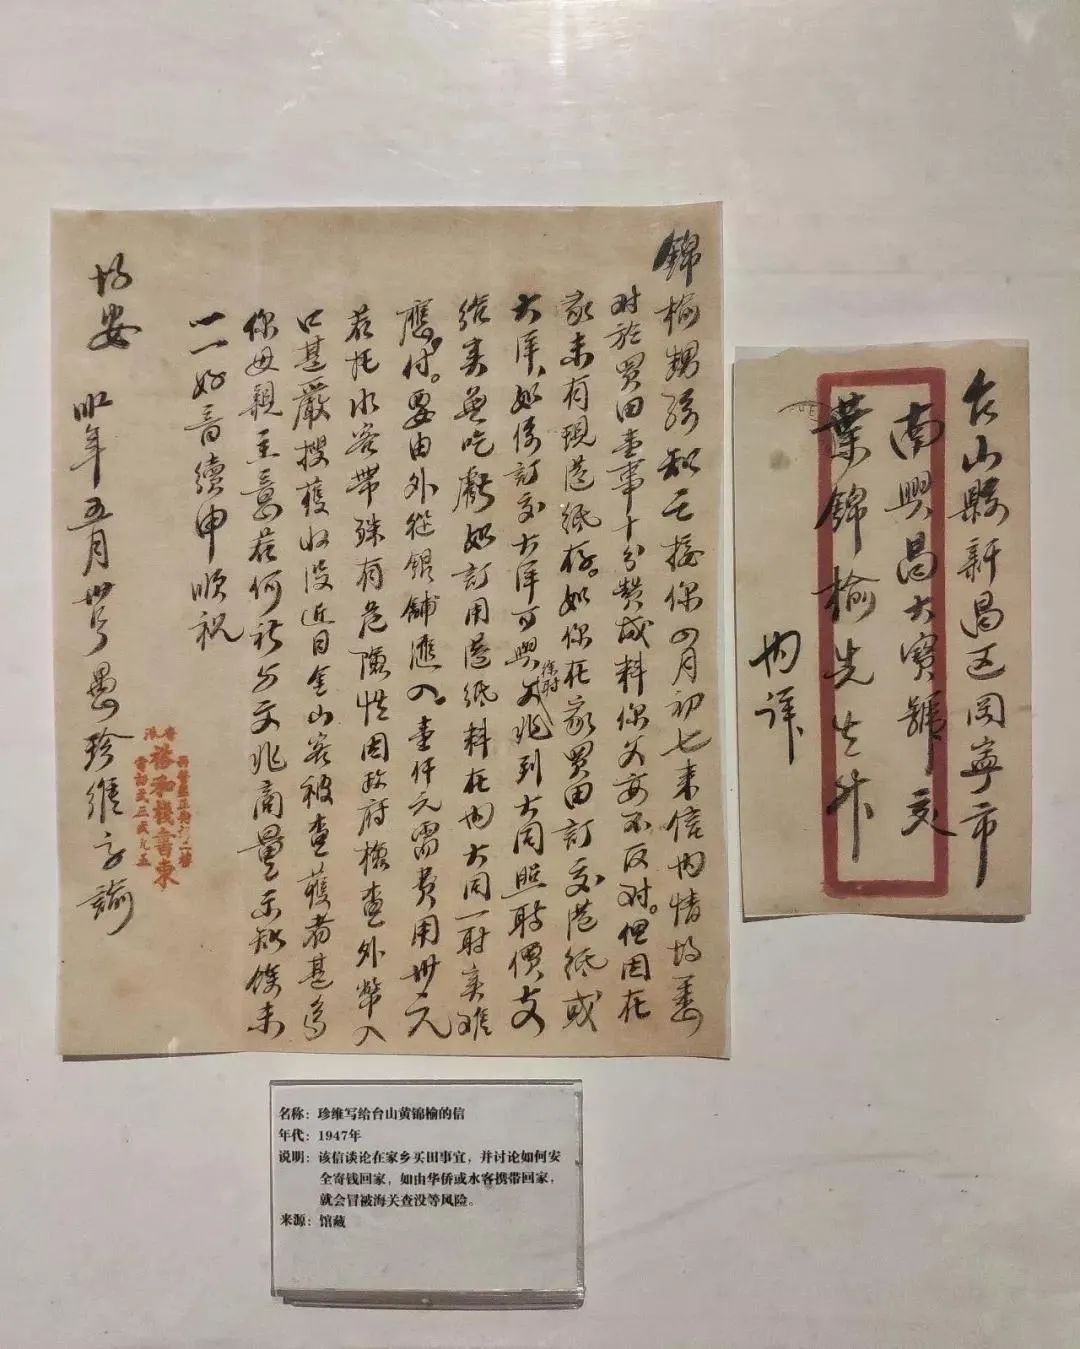 台山縣新昌区岡寧市
南興昌大寶號交
葉錦榆先生升
内详
錦榆甥孫知之接你四月初七来信内情均悉
对於買田壹事十分贊成料你父母不反对。但因在
家未有現港纸存。如你在家買田訂交港纸或
大洋、如係訂交大洋可與父兆到大同照時價支
你討
给奕無吃虧如訂用港纸料在内大同一时奕难
應付。要由外從银舖滙入。壹仟元需費用卅元
若托水客带殊有危險性因政府檢查外幣入
口甚嚴搜獲收没近日金山客被查獲者甚多
你母親主意若何祈与文兆商量示知餘未
一一好音續申順祝
均安
卅年五月廿号愚珍維字諭
香港
裕和棧書柬
名称：珍维写给台山黄锦榆的信
年代：1947年
说明：该信谈论在家乡买田事宜，并讨论如何安
全寄钱回家，如由华侨或水客携带回家，
就会冒被海关查没等风险。
来源：馆藏